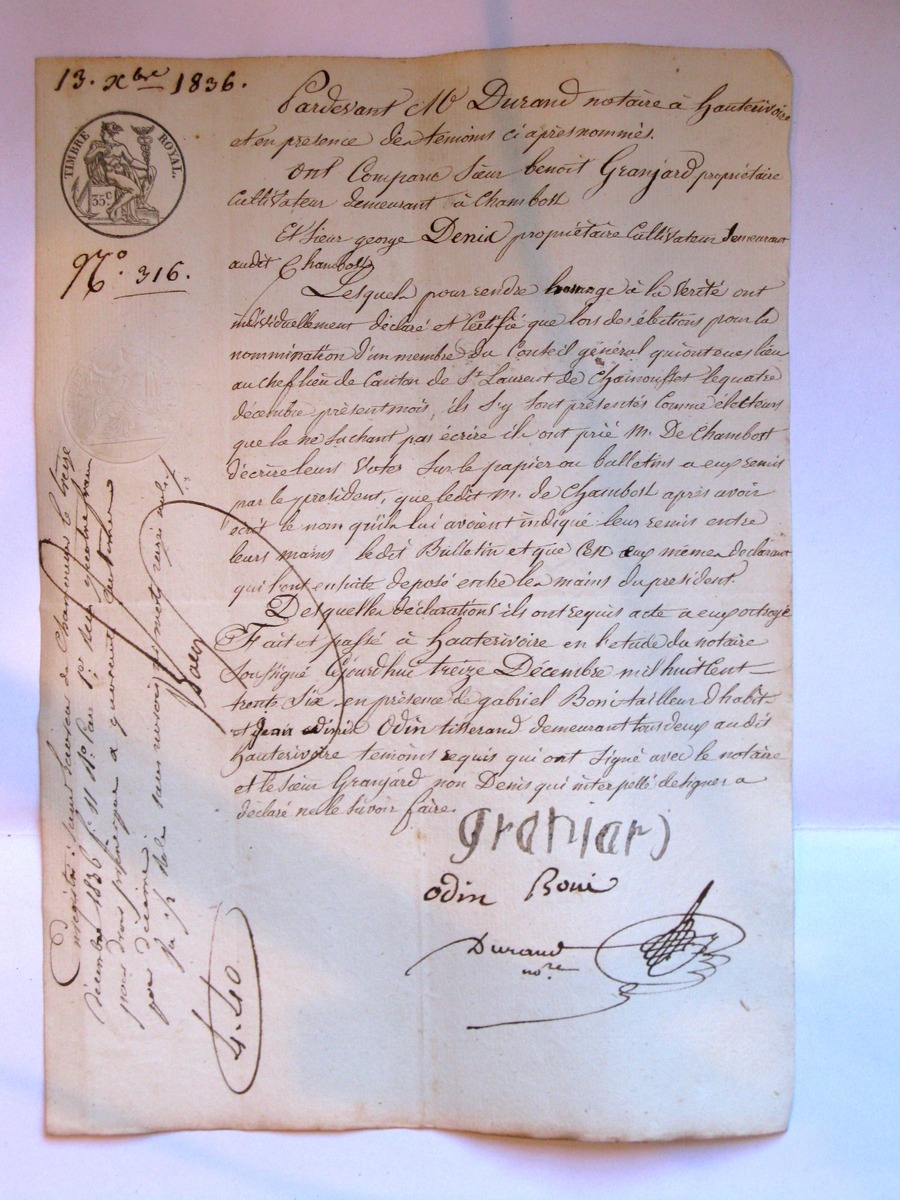 13. Xbre 1836.
TIMBRE ROYAL.
35 C
N.o 316.
Pardevant Me Durand notaire à hauterivoire
et en présence des temoins ci après nommés.
Ont Comparu Sieur benoit Granjard propriétaire
cultivateur demeurant à Chambost
Et Sieur george Denis propriétaire Cultivateur demeurant
audit Chambost
Lesquels pour rendre homage à la vérité ont
individuellement déclaré et Certifié que lors des élections pour la
nommination d'un membre du Conseil général qui ont eues lieu
au chef lieu de Canton de St Laurent de Chamousset le quatre
décembre présent mois, ils s'y sont présentés Comme électeurs
que la ne sachant pas écrire ils ont prié M. De Chambost
décrire leurs Votes Sur le papier ou bulletins a eux remis
par le président, que ledit M. de Chambost après avoir
écrit le nom qu'ils lui avoient indiqué leur remis entre
leurs mains ledit Bulletin et que C'est eux mêmes déclarant
qui l'ont ensuite déposé entre les mains du président.
Desquelles déclarations ils ont requis acte a eux octroyé
Fait et passé à hauterivoire en l'étude du notaire
Soussigné cejourdhui treize Décembre mil huit Cent
trente Six en présence de gabriel Boni tailleur d'habit
et Odin tisserand demeurant tous deux au dit
hauterivoire temoins requis qui ont Signé avec le notaire
et le Sieur Granjard non Denis qui interpellé de signer a
déclaré ne le Savoir faire.
granjard
odin Boni
Durand
nore
Enregistré à Saint Laurent de Chamousset le treize
décembre 1836 fo 11 Ro
pour droit
par décime
4.40